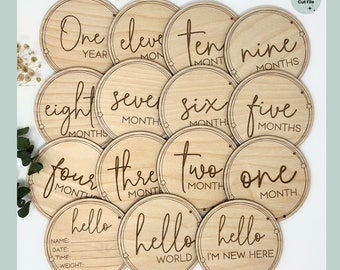 Cut File
One
YEAR
eleven
MONTHS
ten
MONTHS
nine
MONTHS
eight
MONTHS
seven
MONTHS
six
MONTHS
five
MONTHS
four
MONTHS
three
MONTHS
two
MONTHS
one
MONTH
hello
NAME:
DATE:
TIME:
WEIGHT:
hello
WORLD
hello
I'M NEW HERE